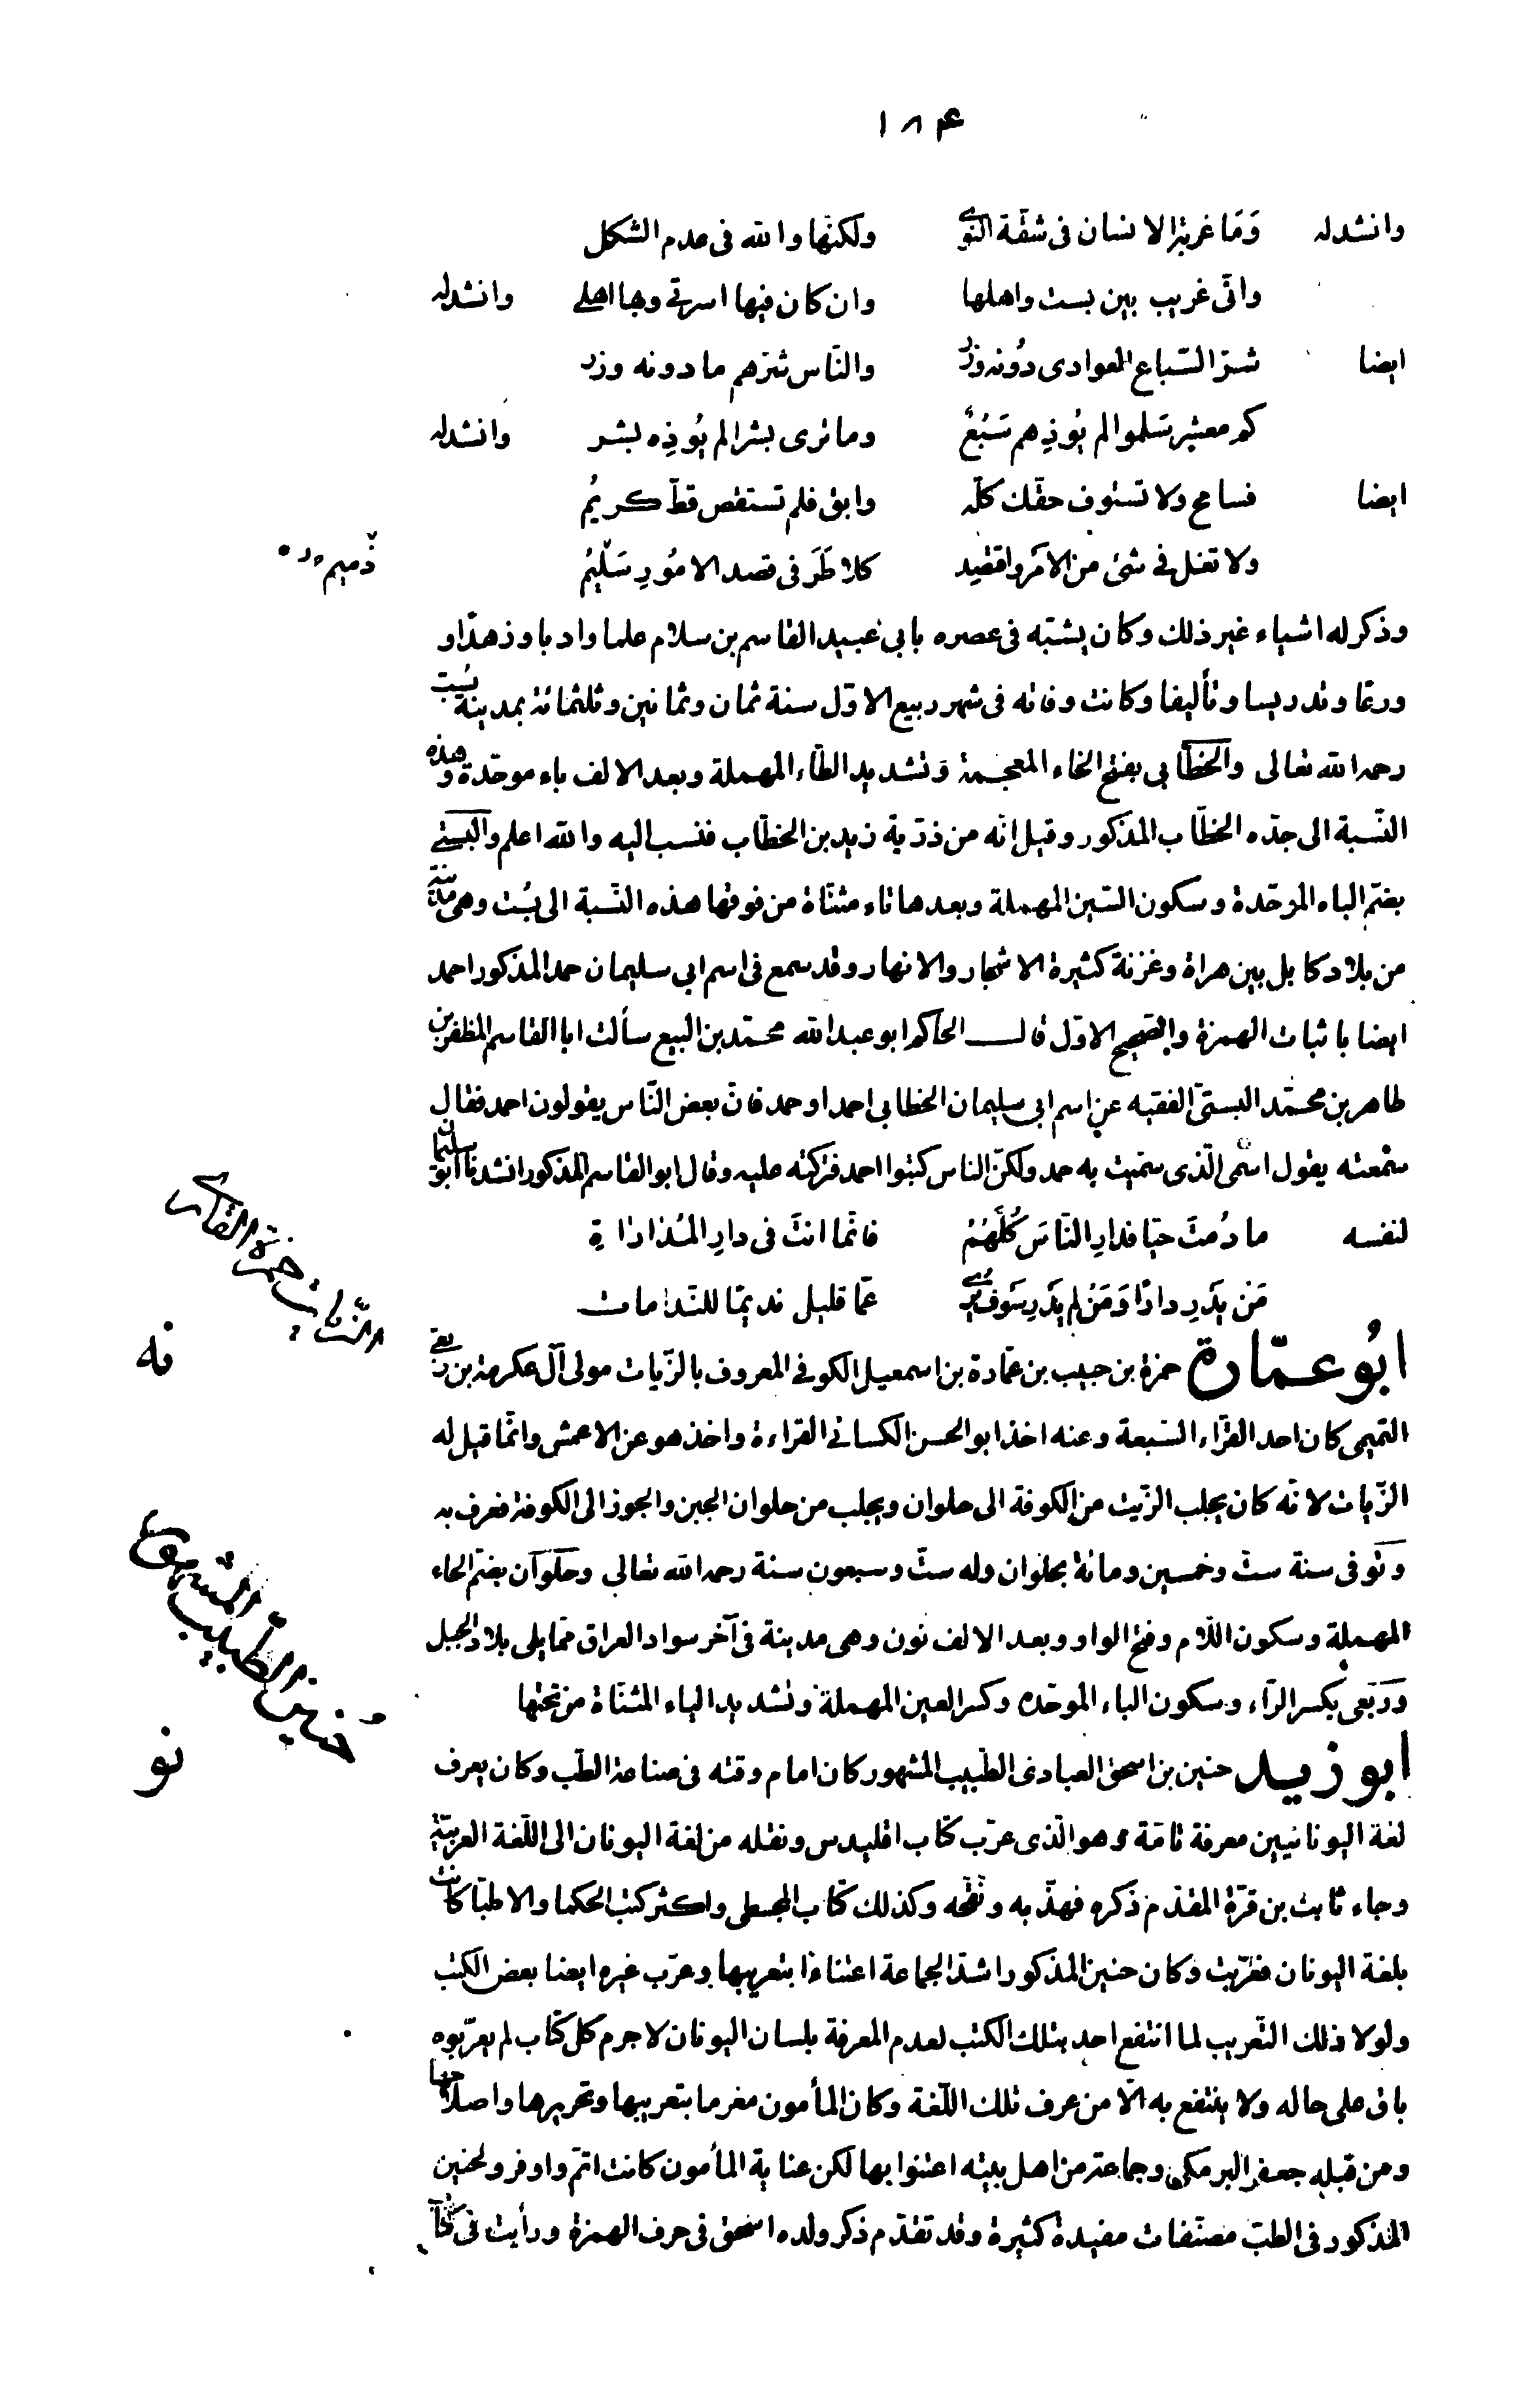 ١٨۴
وانشد له وَمَا غربة الانسان فى شقّة النّوى ولكنّها والله فى عدم الشكل
وانّى غريب بين بست واهلها وان كان فيها اسرتى وبها اهلى وانشد له
ايضا شرّ السّباع العوادى دُونه وزرٌ والنّاس شرّهم ما دونه وزر
كم معشر سَلموا لم يُوذِهم سَبُعٌ وما نرى بشرا لم يُوذِه بشر وانشد له
ايضا فسامح ولا تستوف حقّك كلّه وابق فلم تستقص قطّ كريُم
ولا تغل فى شئ من الامر واقتصِد كلا طَرَفى قصد الامُورِ سَلْيُم
ذميم
وذكر له اشياء غير ذلك وكان يشبّه فى عصره بابى عبيد القاسم بن سلام علما وادبا وزهدًا و
ورعًا وتدريسا وتأليفا وكانت وفاته فى شهر ربيع الاوّل سنة ثمان وثمانين وثلثمائة بمدينة بُست
رحمه الله تعالى والخطّابى بفتح الخاء المعجمة وتشديد الطّاء المهملة وبعد الالف باء موحّدة وهذه
النّسبة الى جدّه الخطّاب المذكور وقيل انّه من ذرّية زيد بن الخطّاب فنسب اليه والله اعلم والبستى
بضمّ الباء الموحّدة وسكون السّين المهملة وبعدها تاء مثنّاة من فوقها هذه النّسبة الى بُست وهى مدينة
من بلاد كابل بين هراة وغزنة كثيرة الاشجار والانهار وقد سمع فى اسم ابى سليمان حمد المذكور احمد
ايضا باثبات الهمزة والصّحيح الاوّل قال الحاكم ابو عبد الله محمّد بن البيع سألت ابا القاسم المظفر بن
طاهر بن محمّد البستىّ الفقيه عن اسم ابى سليمان الخطابى احمد او حمد فانّ بعض النّاس يقولون احمد فقال
سمْعته يقول اسْمى الّذى سمّيت به حمد ولكنّ الناس كتبوا احمد فتركته عليه وقال ابو القاسم المذكور انشدنا ابو سليمان
لنفسه ما دُمتَ حيّا فدارِ النّاسَ كُلَّهُمُ فانّما انتَ فى دارِ المُداراةِ
مَنْ يَدرِ دارَا وَمَنْ لم يَدرِ سَوفَ يُرى عمّا قليل نديمًا للنّدامات
ابُو عمّارة حمزة بن حبيب بن عمّارة بن اسمعيل الكوفى المعروف بالزّيات مولى آل عكرمة بن ربعى
التميمى كان احد القرّاء السّبعة وعنه اخذ ابو الحسن الكسائى القراءة واخذ هو عن الاعمش وانّما قيل له
الزّيات لانّه كان يجلب الزّيت من الكوفة الى حلوان ويجلب من حلوان الجبن والجوز الى الكوفة فعرف به
وتوفى سنة ستّ وخمسين ومائة بحلوان وله ستّ وسبعون سنة رحمه الله تعالى وحلوان بضمّ الحاء
المهملة وسكون اللّام وفتح الواو وبعد الالف نون وهى مدينة فى آخر سواد العراق ممّا يلى بلاد الجبل
وربعى بكسر الرّاء وسكون الباء الموحّده وكسر العين المهملة وتشديد الياء المثنّاة من تحتها
ابو زيد حنين بن اسحق العبادى الطّبيب المشهور كان امام وقته فى صناعة الطّب وكان يعرف
لغة اليونانيين معرفة تامّة وهو الّذى عرّب كتاب اقليدس ونقله من لغة اليونان الى اللّغة العربيّة
وجاء ثابت بن قرّة المقدّم ذكره فهذّبه ونقّحه وكذلك كتاب المجسطى واكثر كتب الحكما والاطبّا كانت
بلغة اليونان فعرّبت وكان حنين المذكور اشدّ الجماعة اعتناءًا بتعريبها وعرّب غيره ايضا بعض الكتب
ولولا ذلك التّعريب لما انتفع احد بتلك الكتب لعدم المعرفة بلسان اليونان لا جرم كل كتاب لم يعرّبوه
باق على حاله ولا ينتفع به الّا من عرف تلك اللّغة وكان المأمون مغرما بتعريبها وتحريرها واصلاحها
ومن قبله جعفر البرمكى وجماعة من اهل بيته اعتنوا بها لكن عناية المأمون كانت اتمّ واوفر ولحنين
المذكور فى الطبّ مصنّفات مفيدة كثيرة وقد تقدّم ذكر ولده اسحق فى حرف الهمزة ورأيت فى كتاب
الزّيات حمزة القارى
نه
حنين الطّبيب المشهور
نو